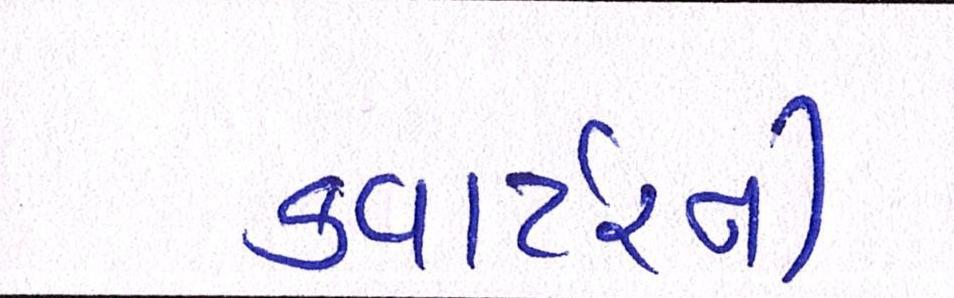 કવાર્ટરની